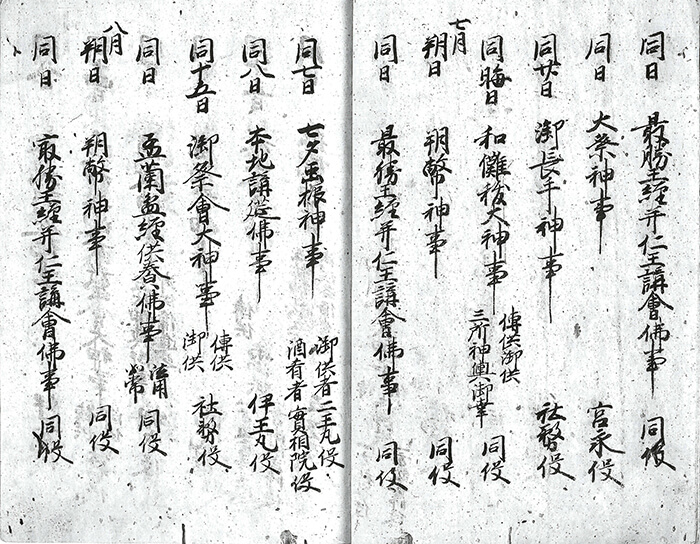 同日 最勝王経并仁王講會佛事 同役
同日 大祭神事 宮永役
同廿日 御長手神事 社務役
同晦日 和儺祓大神事 傳供御供 三所神輿御幸 同役
七月
朔日 朔幣神事 同役
同日 最勝王経并仁王講會佛事 同役
同七日 七夕虫振神事 御供者二王丸役 酒肴者實相院役
同八日 本地講莚佛事 伊王丸役
同十五日 御祭會大神事 傳供 御供 社務役
同日 盂蘭盆経供養佛事 同役
八月
朔日 朔幣神事 同役
同日 最勝王経并仁王講會佛事 同役